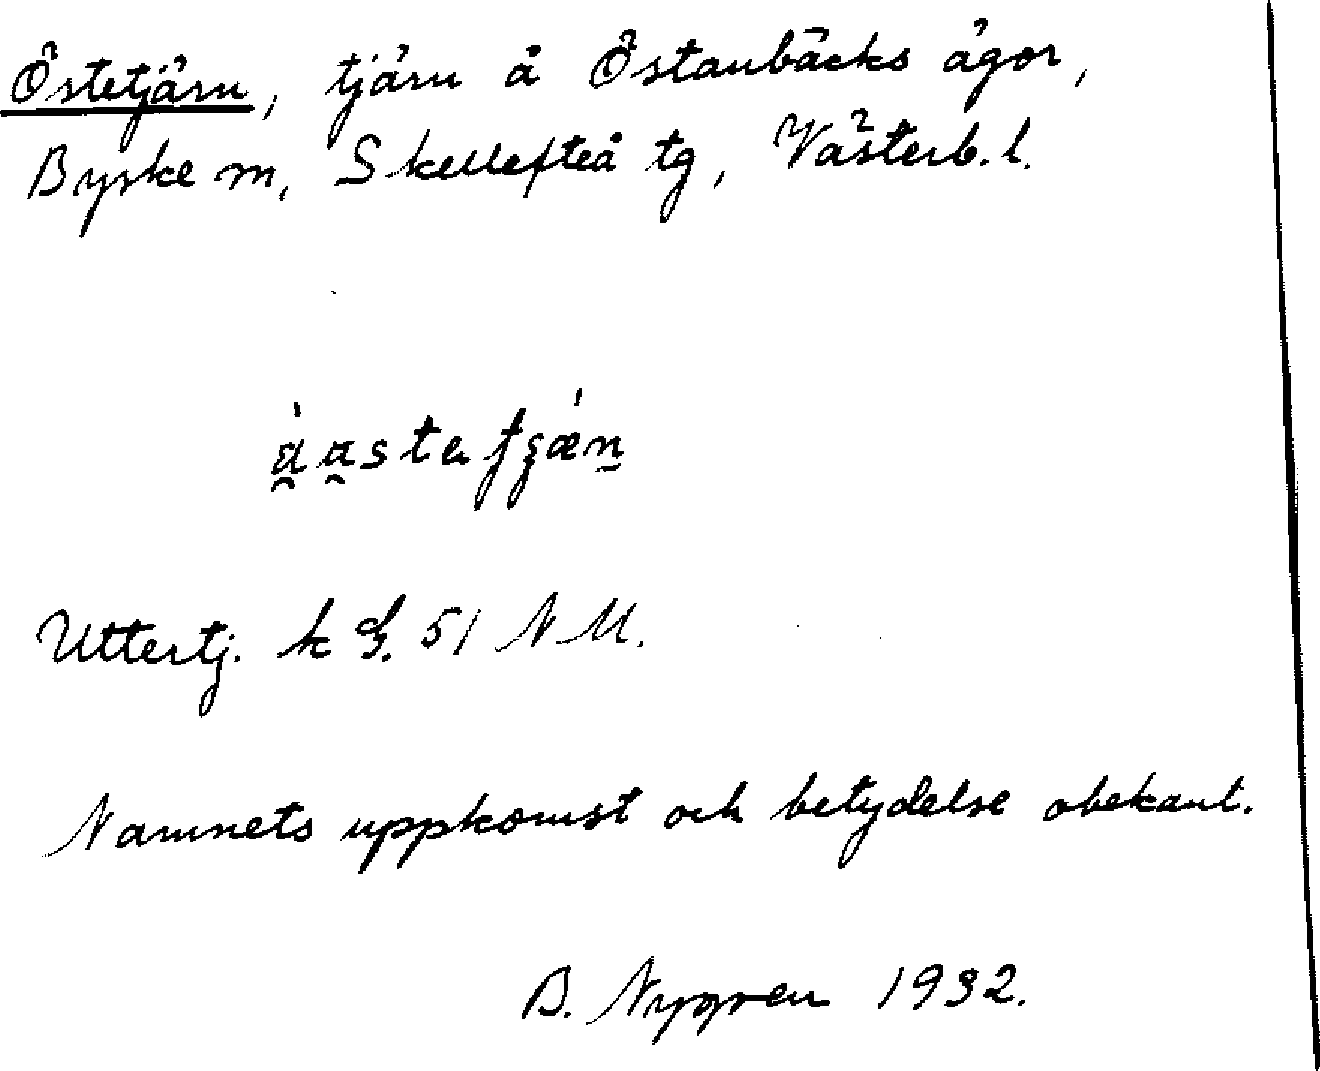 Östetjärn, tjärn å Östanbäcks ägor,
Byske sn, Skellefteå tg, Västerb. l.
Uttertj. k 51 NU.
Namnets uppkomst och betydelse obekant.
B. Nygren 1932.